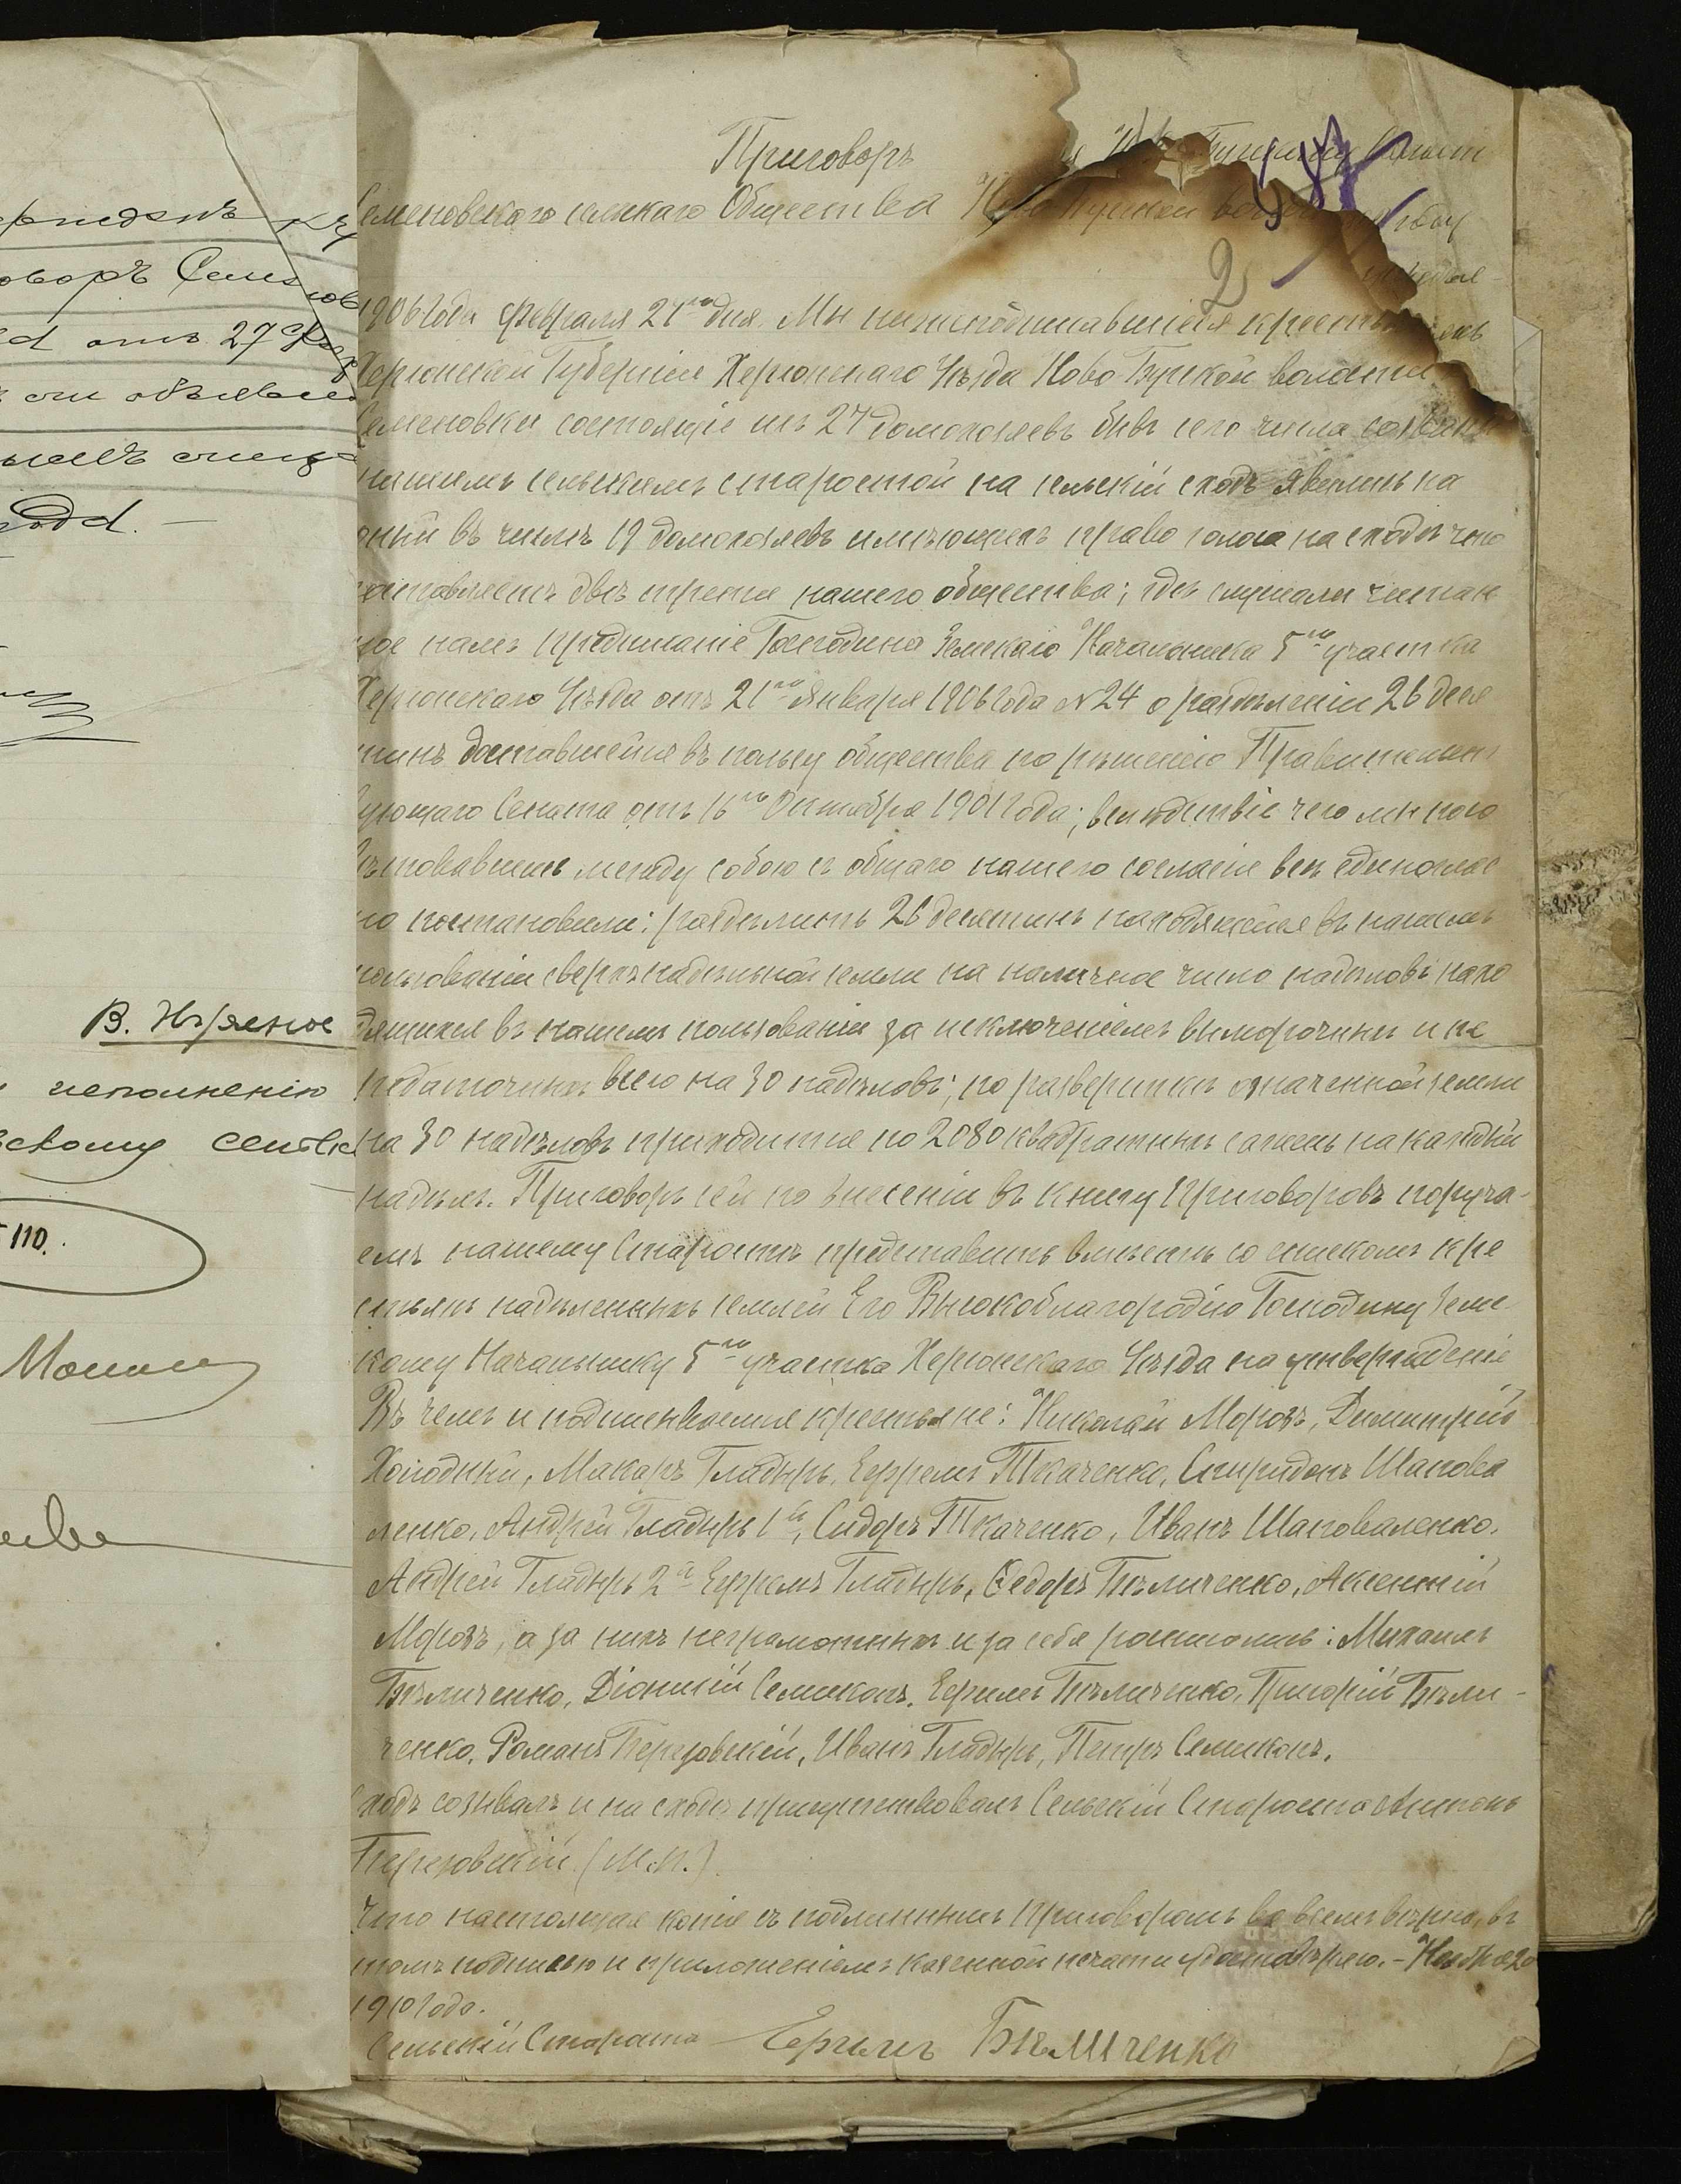 Приговоръ
Семеновскаго сельскаго Общества
1906 года февраля 27го дня. Мы нижеподписавшіеся
Херсонской Губерніи Херсонскаго Уѣзда Ново Бугской волости
Семеновки состоящіе изъ 27 домохозяевъ бывъ сего числа созваны
нашимъ сельскимъ старостой на сельскій сходъ явились на
оный въ числѣ 19 домохозяевъ имѣющихъ право голоса на сходѣ что
составляетъ двѣ трети нашего общества; гдѣ слушали читан
ное намъ предписаніе Господина Земскаго Начальника 5го участка
Херсонскаго Уѣзда отъ 21го Января 1906 года №24 о раздѣленіи 26 деся
тинъ доставшейся въ пользу общества по рѣшенію Правительст
вующаго Сената отъ 16го Октября 1901 года; вслѣдствіе чего мы посо
вѣтовавшись между собою съ общаго нашего согласія всѣ единоглас
но постановили: раздѣлить 26 десятинъ находящейся въ нашемъ
пользованіи сверхънадѣльной земли на наличное число надѣловъ нахо
дящихся въ нашемъ пользованіи за исключеніемъ выморочныхъ и не
податочныхъ всего на 30 надѣловъ; по разверсткѣ означенной земли
на 30 надѣловъ приходится по 2080 квадратныхъ сажень на каждый
надѣлъ. Приговоръ сей по внесеніи въ книгу приговоровъ поруча-
емъ нашему Старостѣ представить вмѣстѣ со спискомъ кре
стьянъ надѣленныхъ землей Его Высокоблагородію Господину Зем
скому Начальнику 5го участка Херсонскаго Уѣзда на утвержденіе
Въ чемъ и подписываемся крестьяне: Николай Морозъ, Димитрій
Холодный, Макаръ Гладырь, Ефремъ Ткаченко, Спиридонъ Шапова
ленко, Андрей Гладырь 1й, Сидоръ Ткаченко, Иванъ Шаповаленко,
Андрей Гладырь 2й Ефремъ Гладырь, Федоръ Бѣличенко, Аксентій
Морозъ, а за нихъ неграмотныхъ и за себя росписались: Михаилъ
Бѣличенко, Діонисій Семикопъ, Ефимъ Бѣличенко, Григорій Бѣли-
ченко, Романъ Березовскій, Иванъ Гладырь, Петръ Семикопъ.
Сходъ созывалъ и на сходѣ присутствовалъ Сельскій Староста Антонъ
Березовскій (М.П.).
Что настоящая копія съ подлиннымъ приговоромъ во всемъ вѣрна, въ
томъ подписью и приложеніемъ казенной печати удостовѣряю. - Ноября 20
1910 года.
Сельскій Староста Ефимъ Бѣличенко
2
оворъ Семенов
отъ 27
В. Нужное
исполненію
скому сельск
110.